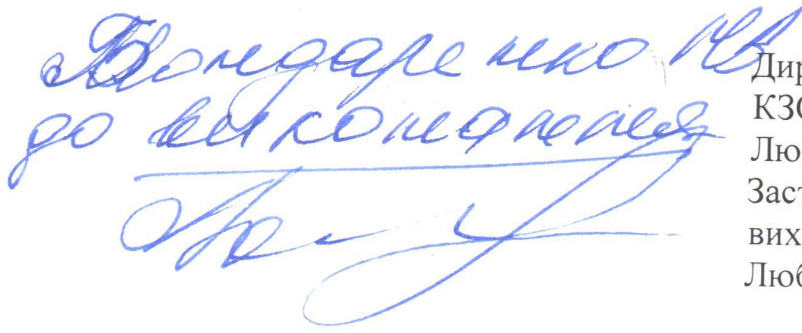 Бондаренко НВ
до виконання
Дир
КЗО
Лю
Заст
вих
Люб